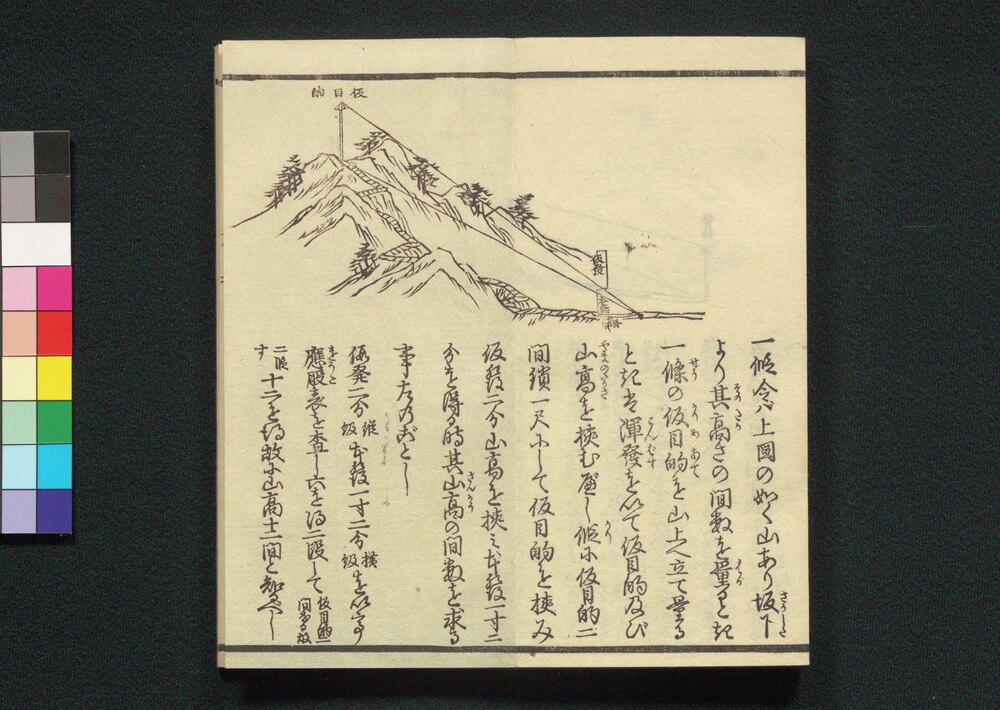 仮目的
仮發
一假令ハ上図の如く山あり坂下
より其高さの間数を量ると起
一條の仮目的を山上へ立て量る
とき者渾發を以て仮目的及び
山高を挾む歴し假に仮目的二
間鎖一尺にして仮目的を挾み
仮發二分山高を挾ミ本發一寸二
分を得る時其山高の間数を求る
事左のごとし
仮発二分 縦坂 本發一寸二分 横坂 を以て
應股表を査し六を得二段して 仮目的二間なる故
二段す 十二を得故に山高十二間と知べし